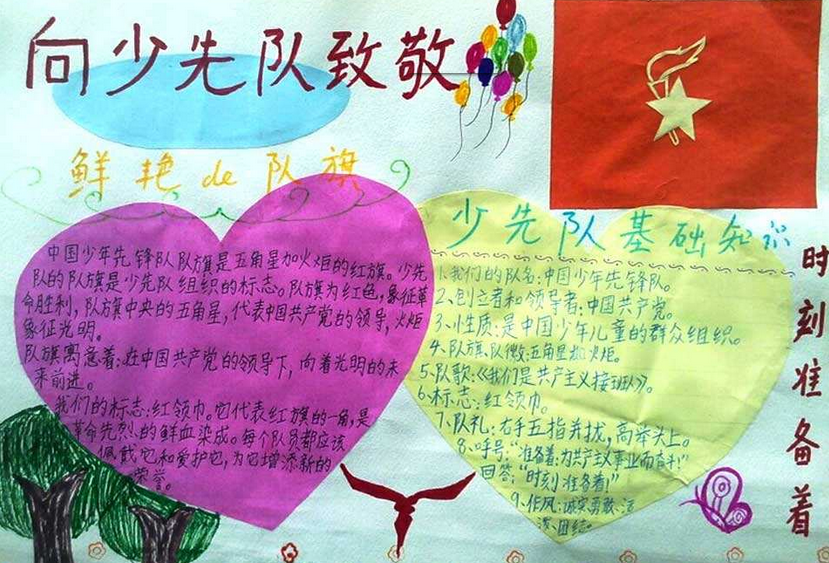 向少先队致敬
鲜艳de队旗
中国少年先锋队队旗是五角星加火炬的红旗。少先
队的队旗是少先队组织的标志。队旗为红色,象征革
命胜利,队旗中央的五角星,代表中国共产党的领导,火炬
象征光明。
队旗寓意着:在中国共产党的领导下,向着光明的未
来前进。
我们的标志:红领巾。它代表红旗的一角,是
革命先烈的鲜血染成。每个队员都应该
佩戴它和爱护它,为它增添新的
荣誉。
少先队基础知识
1.我们的队名:中国少年先锋队。
2、创立者和领导者:中国共产党。
3、小性质:是中国少年儿童的群众组织。
4、队旗、队徽:五角星加火炬。
5、队歌:《我们是共产主义接班人》。
6、标志:红领巾。
7、队礼:右手五指并拢,高举头上。
8、呼号:“准备着:为共产主义事业而奋斗!”
回答:“时刻准备着!”
9、作风:诚实、勇敢、活
泼、团结。
时刻准备着